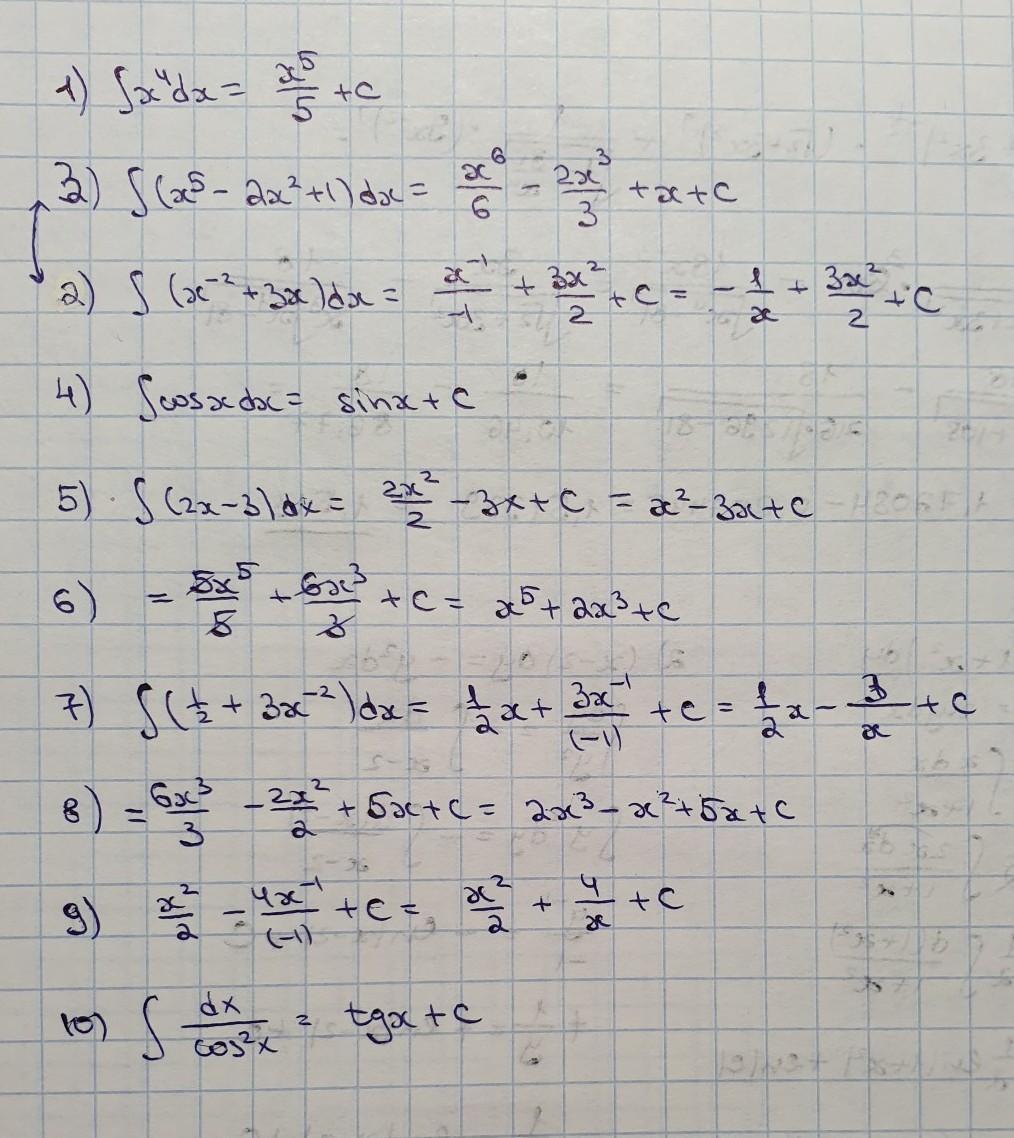 1) ∫x⁴dx = x⁵/5 + c
3) ∫(x⁵ - 2x² + 1)dx = x⁶/6 - 2x³/3 + x + c
2) ∫(x⁻² + 3x)dx = x⁻¹/-1 + 3x²/2 + c = -1/x + 3x²/2 + c
4) ∫cosxdx = sinx + c
5) ∫(2x-3)dx = 2x²/2 - 3x + c = x² - 3x + c
6) = 5x⁵/5 + 6x³/3 + c = x⁵ + 2x³ + c
7) ∫(1/2 + 3x⁻²)dx = 1/2 x + 3x⁻¹/(-1) + c = 1/2 x - 3/x + c
8) = 6x³/3 - 2x²/2 + 5x + c = 2x³ - x² + 5x + c
9) x²/2 - 4x⁻¹/(-1) + c = x²/2 + 4/x + c
10) ∫ dx/cos²x = tgx + c